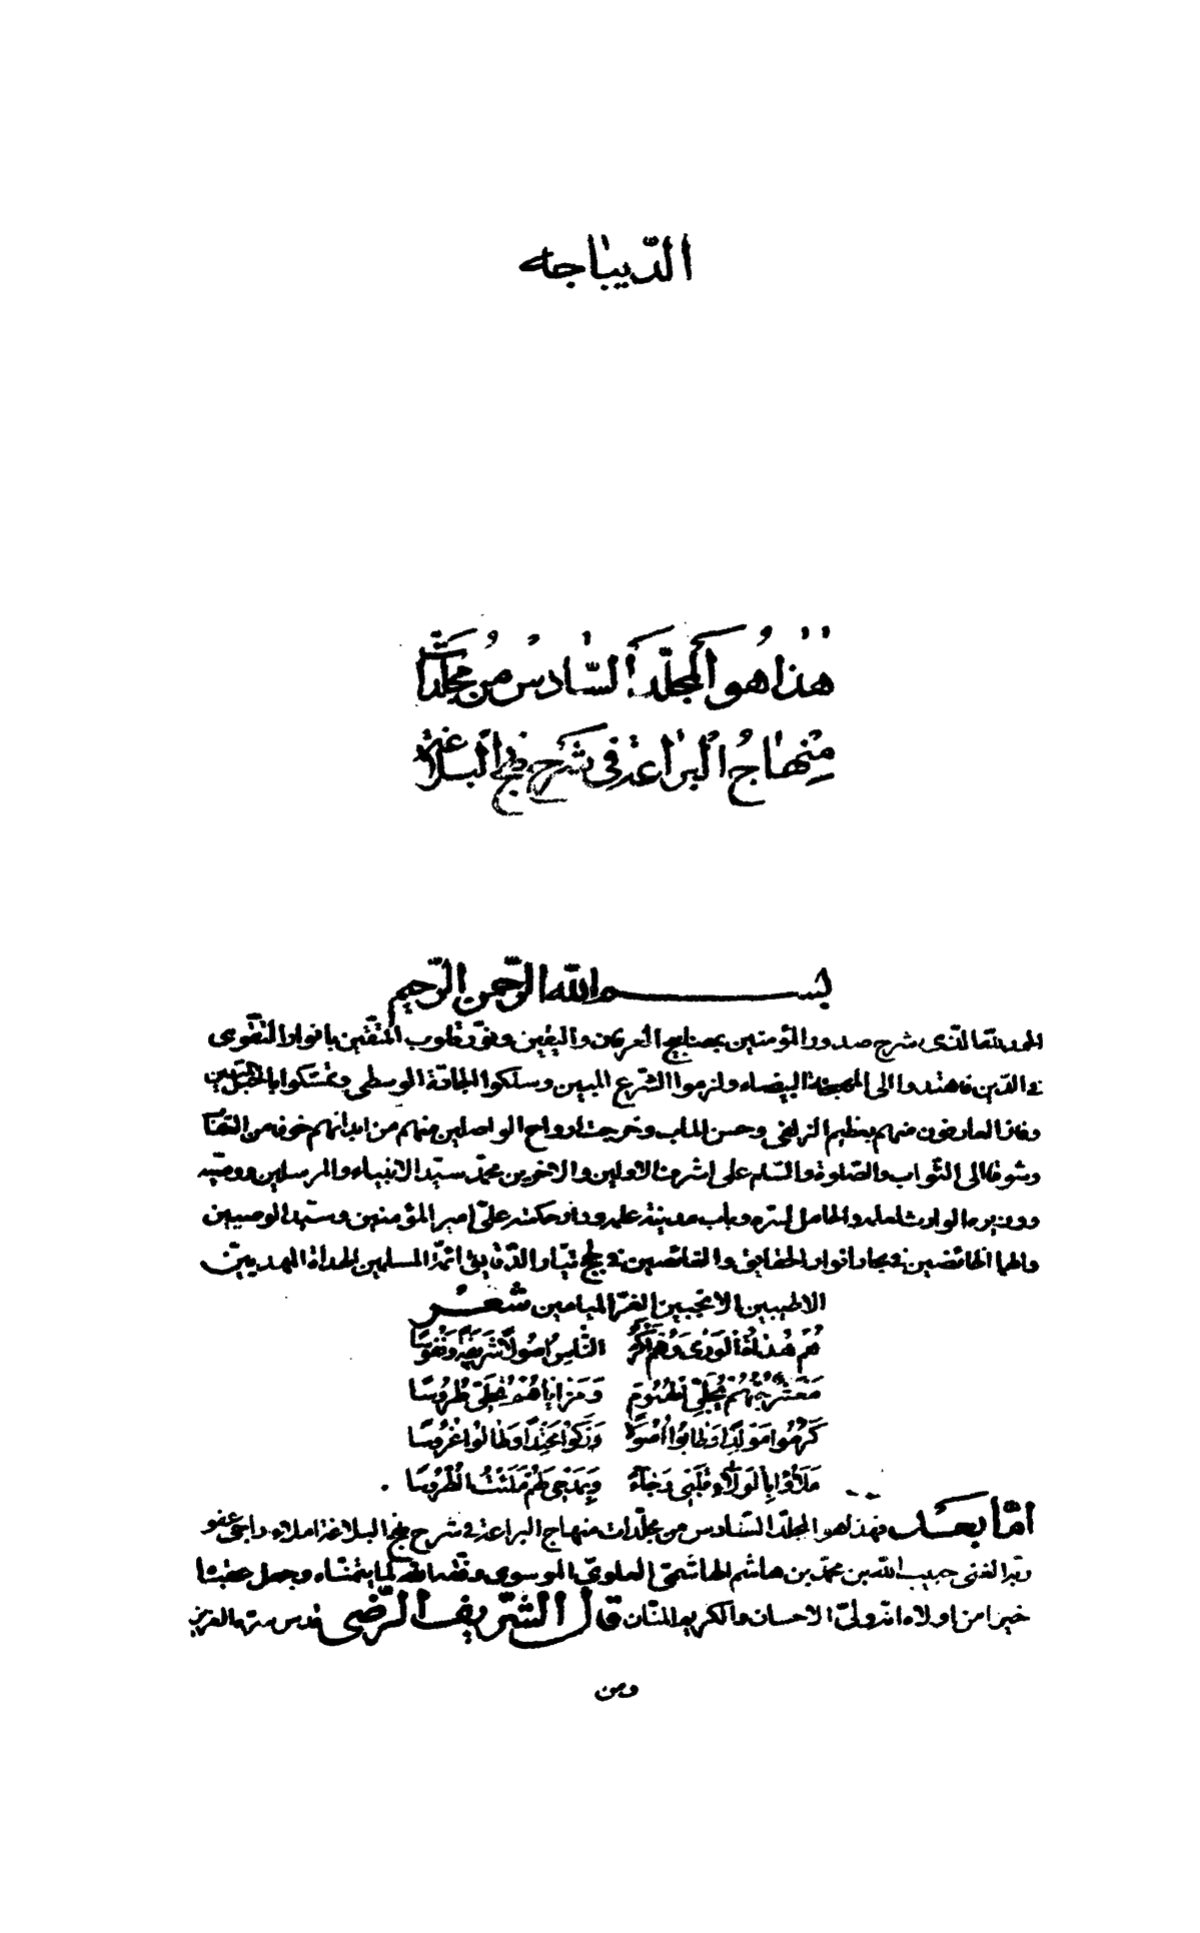 الدّيباجه
هٰذا هُو المجلّدُ السّادسُ مِن مجلّدات
مِنهاجُ البَراعة فى شَرح نهج البلاغة
بسم الله الرّحمن الرّحيم
الحمد لله الّذى شرح صدور المؤمنين بمصابيح العرفان واليقين ونوّر قلوب المتّقين بانوار التّقوى
فى الدّين فاهتدوا الى المحجّة البيضاء ولزموا الشّرع المبين وسلكوا الجادّة الوسطى وتمسّكوا بالحبل المتين
وفاز العارفون منهم بعظيم الزلفى وحسن المآب وخرجت ارواح الواصلين منهم من ابدانهم خوفا من العقاب
وشوقا الى الثّواب والصّلوة والسّلم على اشرف الاولين والاخرين محمّد سيّد الانبياء والمرسلين ووصيّه
ووزيره الوارث لعلمه والحامل لسرّه وباب مدينة علمه ودار حكمته علىّ امير المؤمنين وسيّد الوصيين
والهما الخائضين فى بحار انوار الحقايق والغائصين فى لجج تيّار الدّقايق ائمّة المسلمين الهداة المهديين
الاطيبين الانجبين الغرّ الميامين شعر
هُم هُداةُ الوَرى وَهُم اكرَمُ النّاسِ اُصُولًا شَريفَةً ونُفُوسًا
مَعشَرٌ حُبّهُم يُجَلّى هُمُومًا وَمَزاياهُمُ تُحَلّى طُرُوسًا
كَرُمُوا مَولِدًا وَطابُوا اُصُولًا وَزَكَوا مَحتِدًا وَطالُوا غُرُوسًا
مَلَاُوا بِالوَلاءِ قَلبى رَجاءً وَبِمَدحى لَهُم مَلَئتُ الطُرُوسَا
امّا بعد فهذا هو المجلّد السّادس من مجلّدات منهاج البراعة فى شرح نهج البلاغة املاء راجى عفو
ربّه الغنى حبيب الله بن محمّد بن هاشم الهاشمىّ العلوىّ الموسوى وفّقه الله لما يتمنّاه وجعل عقباه
خيرا من اولاه انّه ولىّ الاحسان والكريم المنّان قال الشّريف الرّضى قدس سرّه العزيز
ومن